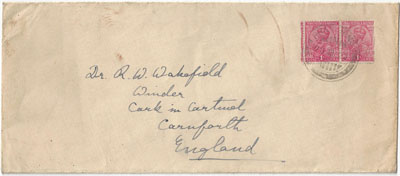 Dr. R. W. Wakefield
Winder
Cark in Cartmel
Carnforth
England